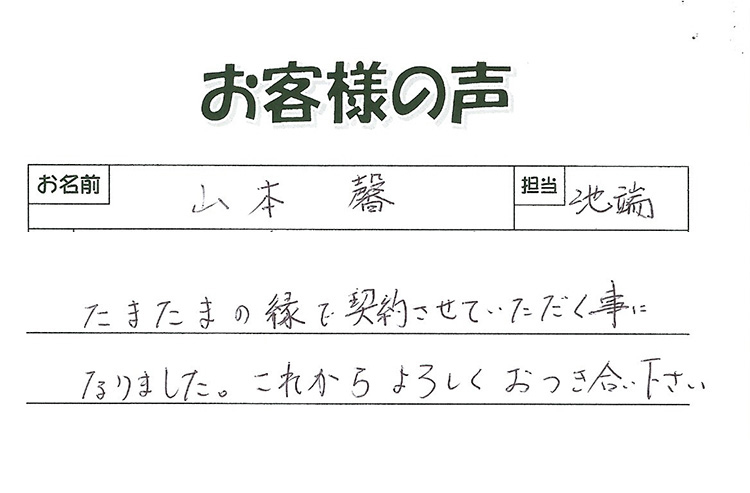 お客様の声
お名前 山本 馨 担当 池端
たまたまの縁で契約させていただく事に
なりました。これからよろしくおつき合い下さい